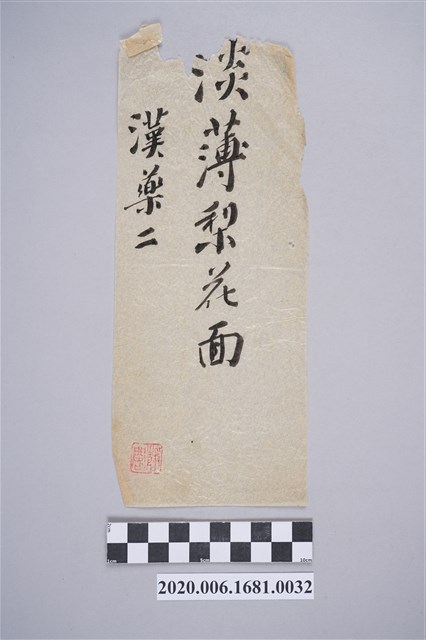 淡薄梨花面
漢藥二
1cm 5cm 10cm
2020.006.1681.0032